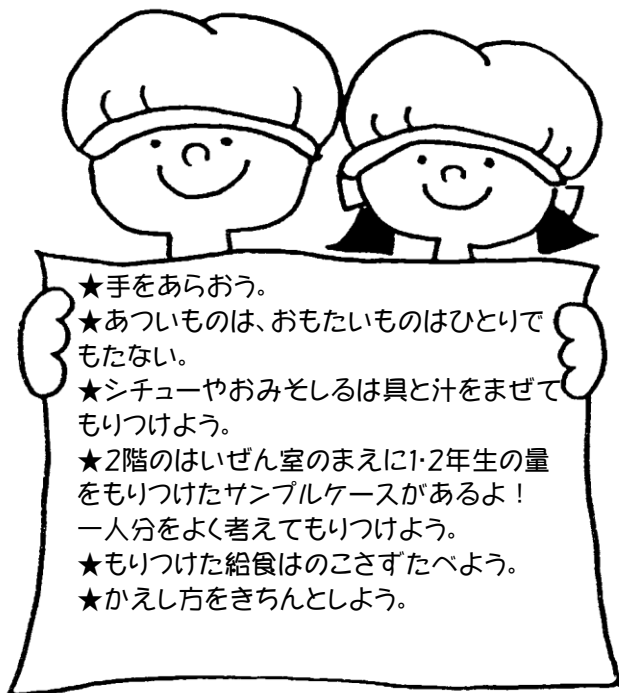 ★手をあらおう。
★あついものは、おもたいものはひとりで
もたない。
★シチューやおみそしるは具と汁をまぜて
もりつけよう。
★2階のはいぜん室のまえに1・2年生の量
をもりつけたサンプルケースがあるよ！
一人分をよく考えてもりつけよう。
★もりつけた給食はのこさずたべよう。
★かえし方をきちんとしよう。